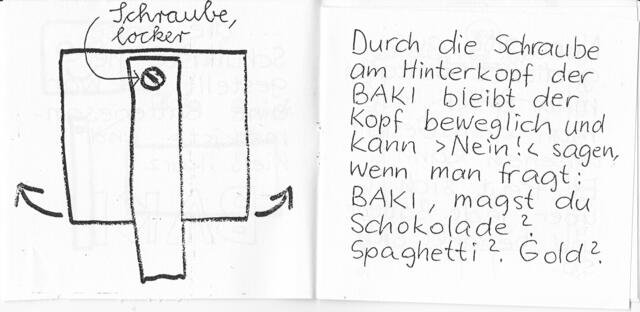 Schraube,
locker
Durch die Schraube
am Hinterkopf der
BAKI bleibt der
Kopf beweglich und
kann >Nein!< sagen,
wenn man fragt:
BAKI, magst du
Schokolade?
Spaghetti? Gold?